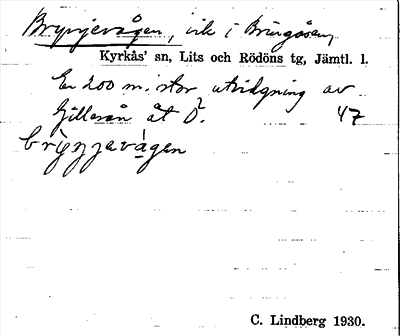 Bryvjevågen, vik i Bringåsen,
Kyrkås' sn, Lits och Rödöns tg, Jämtl. l.
En 200 m. stor utvidgning av
åt Ö. 47
C. Lindberg 1930.